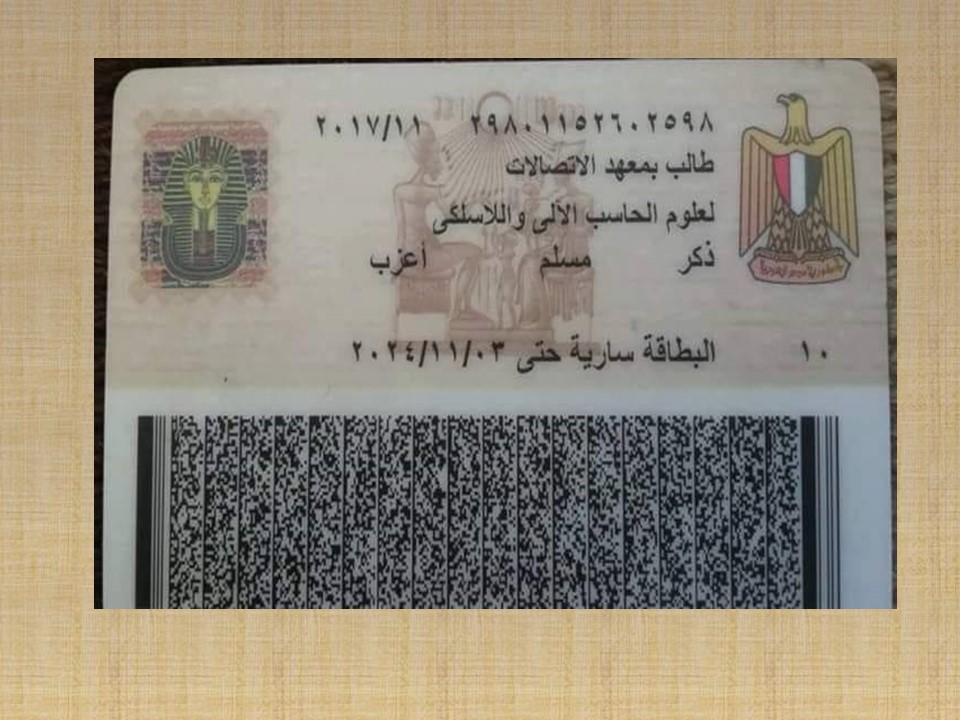 ٢٩٨٠١١٥٢٦٠٢٥٩٨ ٢٠١٧/١١
طالب بمعهد الاتصالات
لعلوم الحاسب الآلى واللاسلكى
ذكر مسلم أعزب
١٠ البطاقة سارية حتى ٢٠٢٤/١١/٠٣